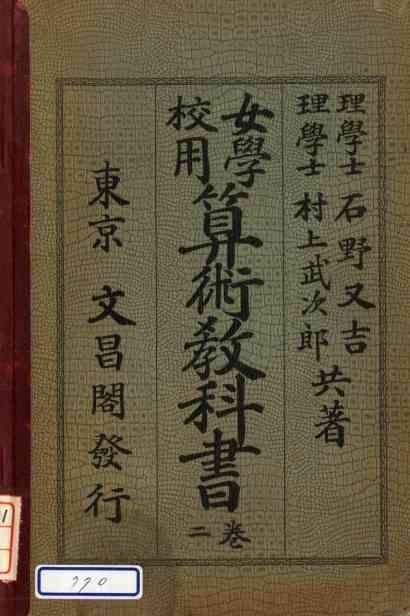 理學士 石野又吉
理學士 村上武次郎
共著
女學校用
算術教科書
卷二
東京 文昌閣發行
770